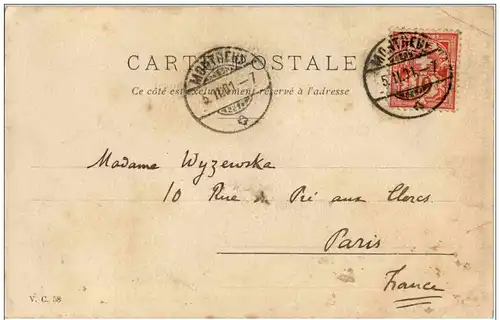 CARTE POSTALE
Ce côté est exclusivement réservé à l'adresse
MONTREUX
5.II.01.-7
MONTREUX
5.II.01.-7
Madame Wyzewska
10 Rue du Pré aux Clercs
Paris
France
V. C. 58